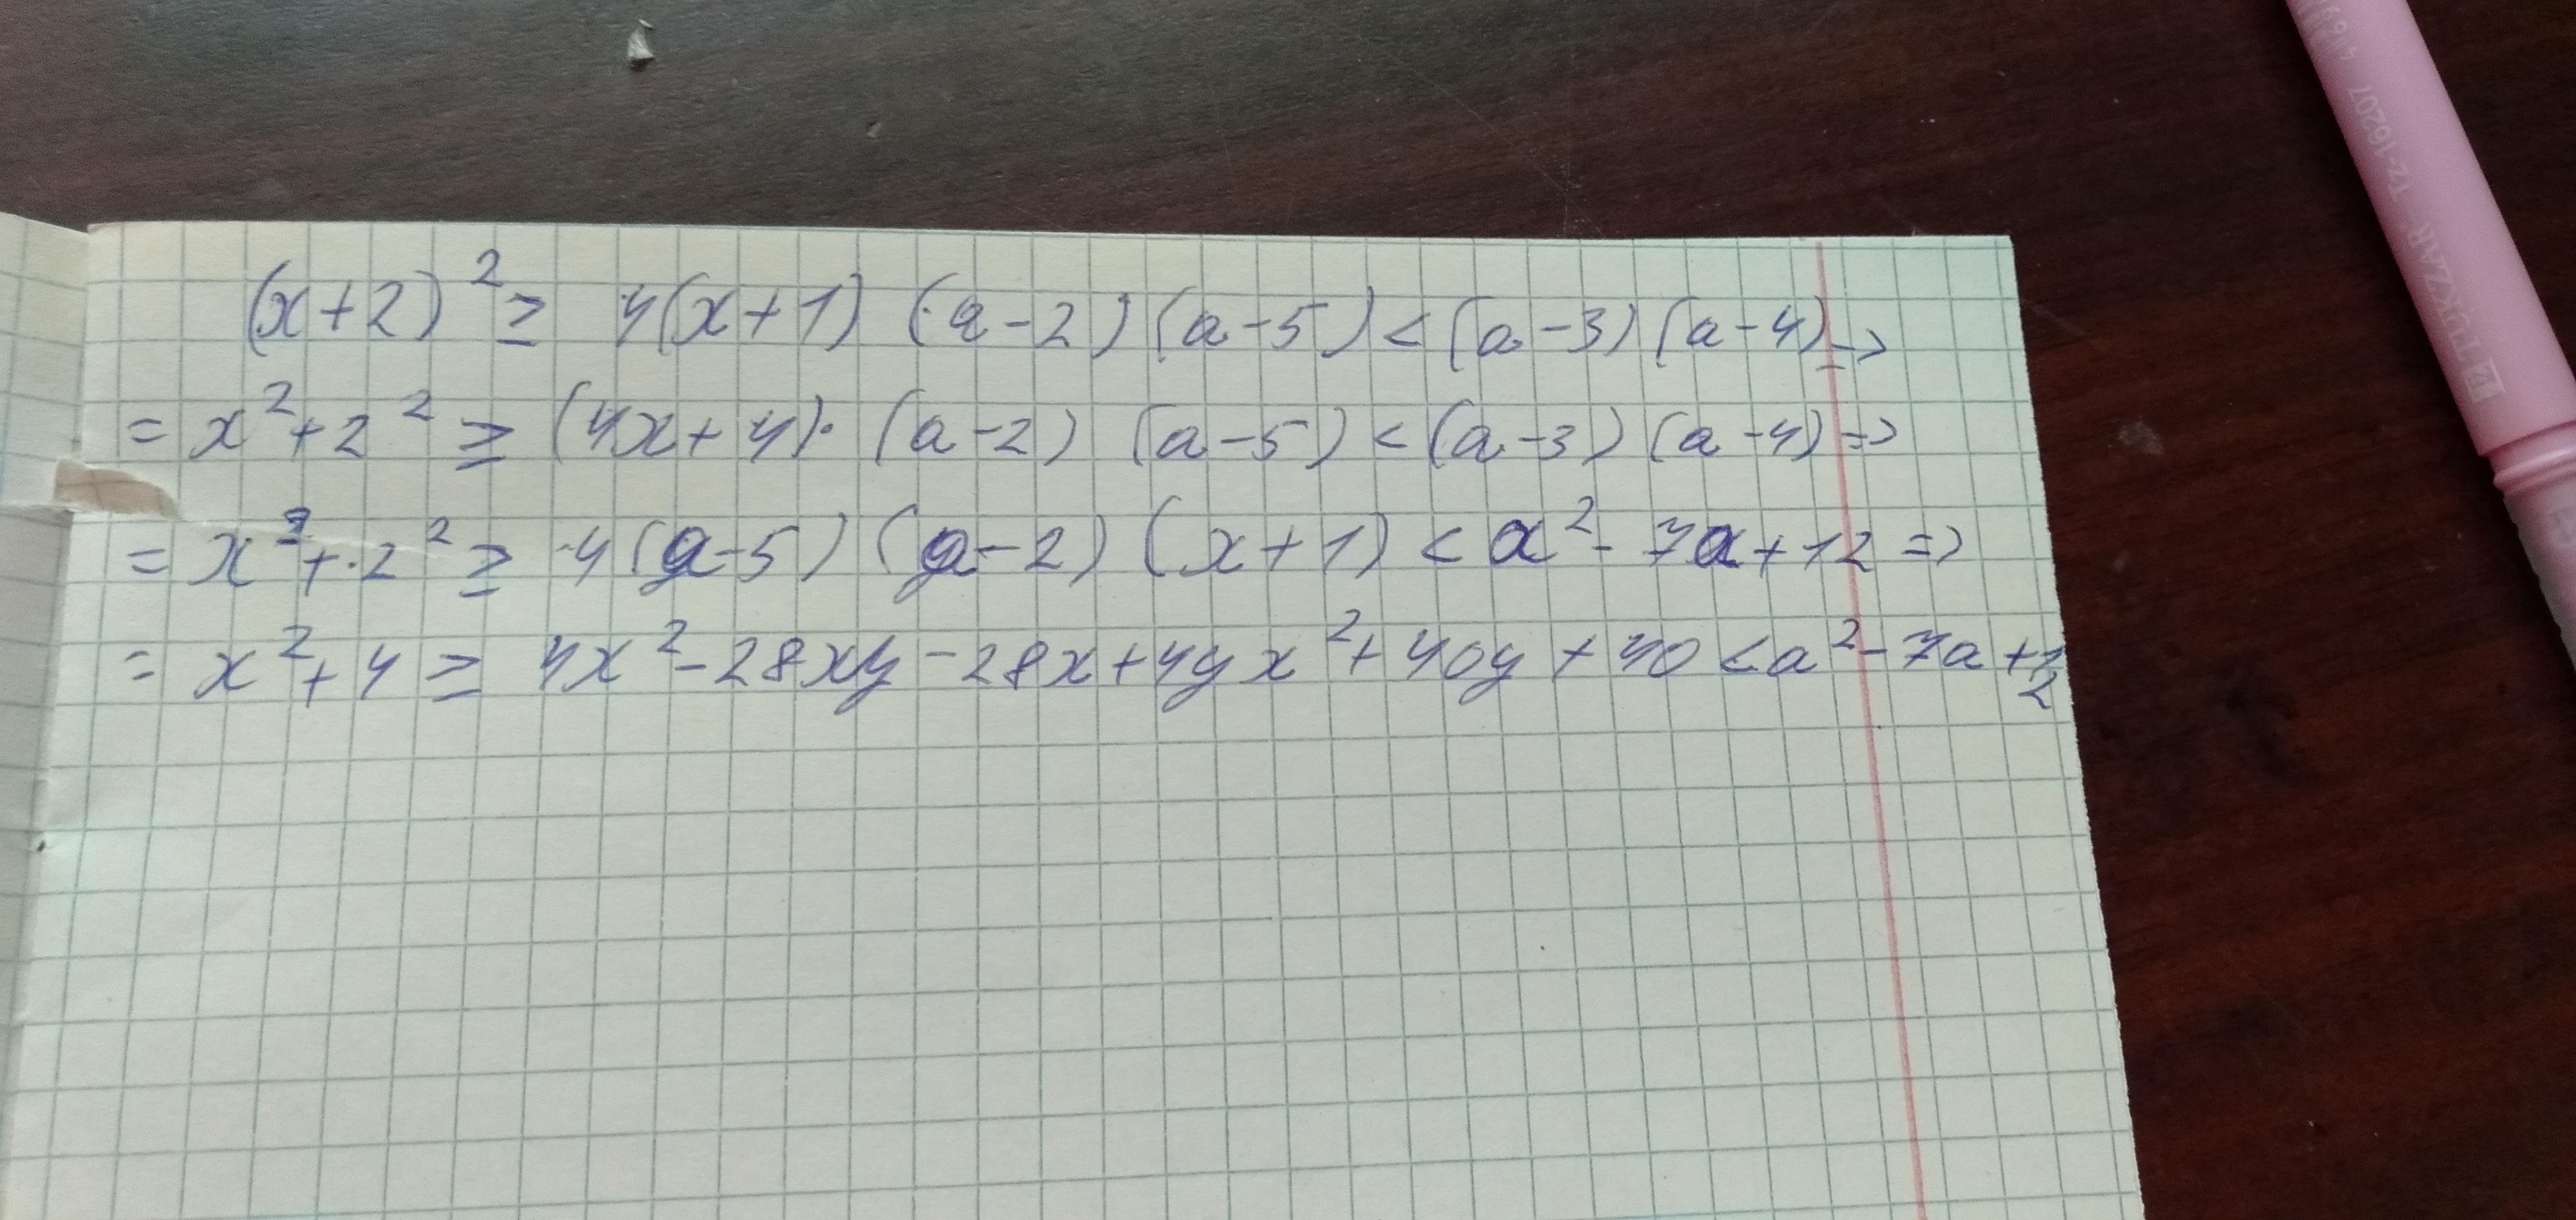 (x+2)² ≥ 4(x+1) (a-2) (a-5) < (a-3) (a-4) =>
= x²+2² ≥ (4x+4)· (a-2) (a-5) < (a-3) (a-4) =>
= x²+·2² ≥ 4(a-5) (a-2) (x+1) < a²- 7a+12 =>
= x²+4 ≥ 4x²-28xy-28x+4yx²+40y+40 < a²-7a+12
TUKZAR TZ-16207